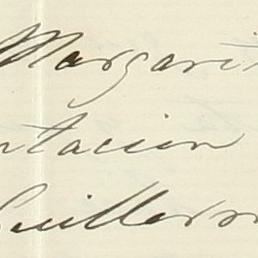 Margarit
ntacion
Guillerm